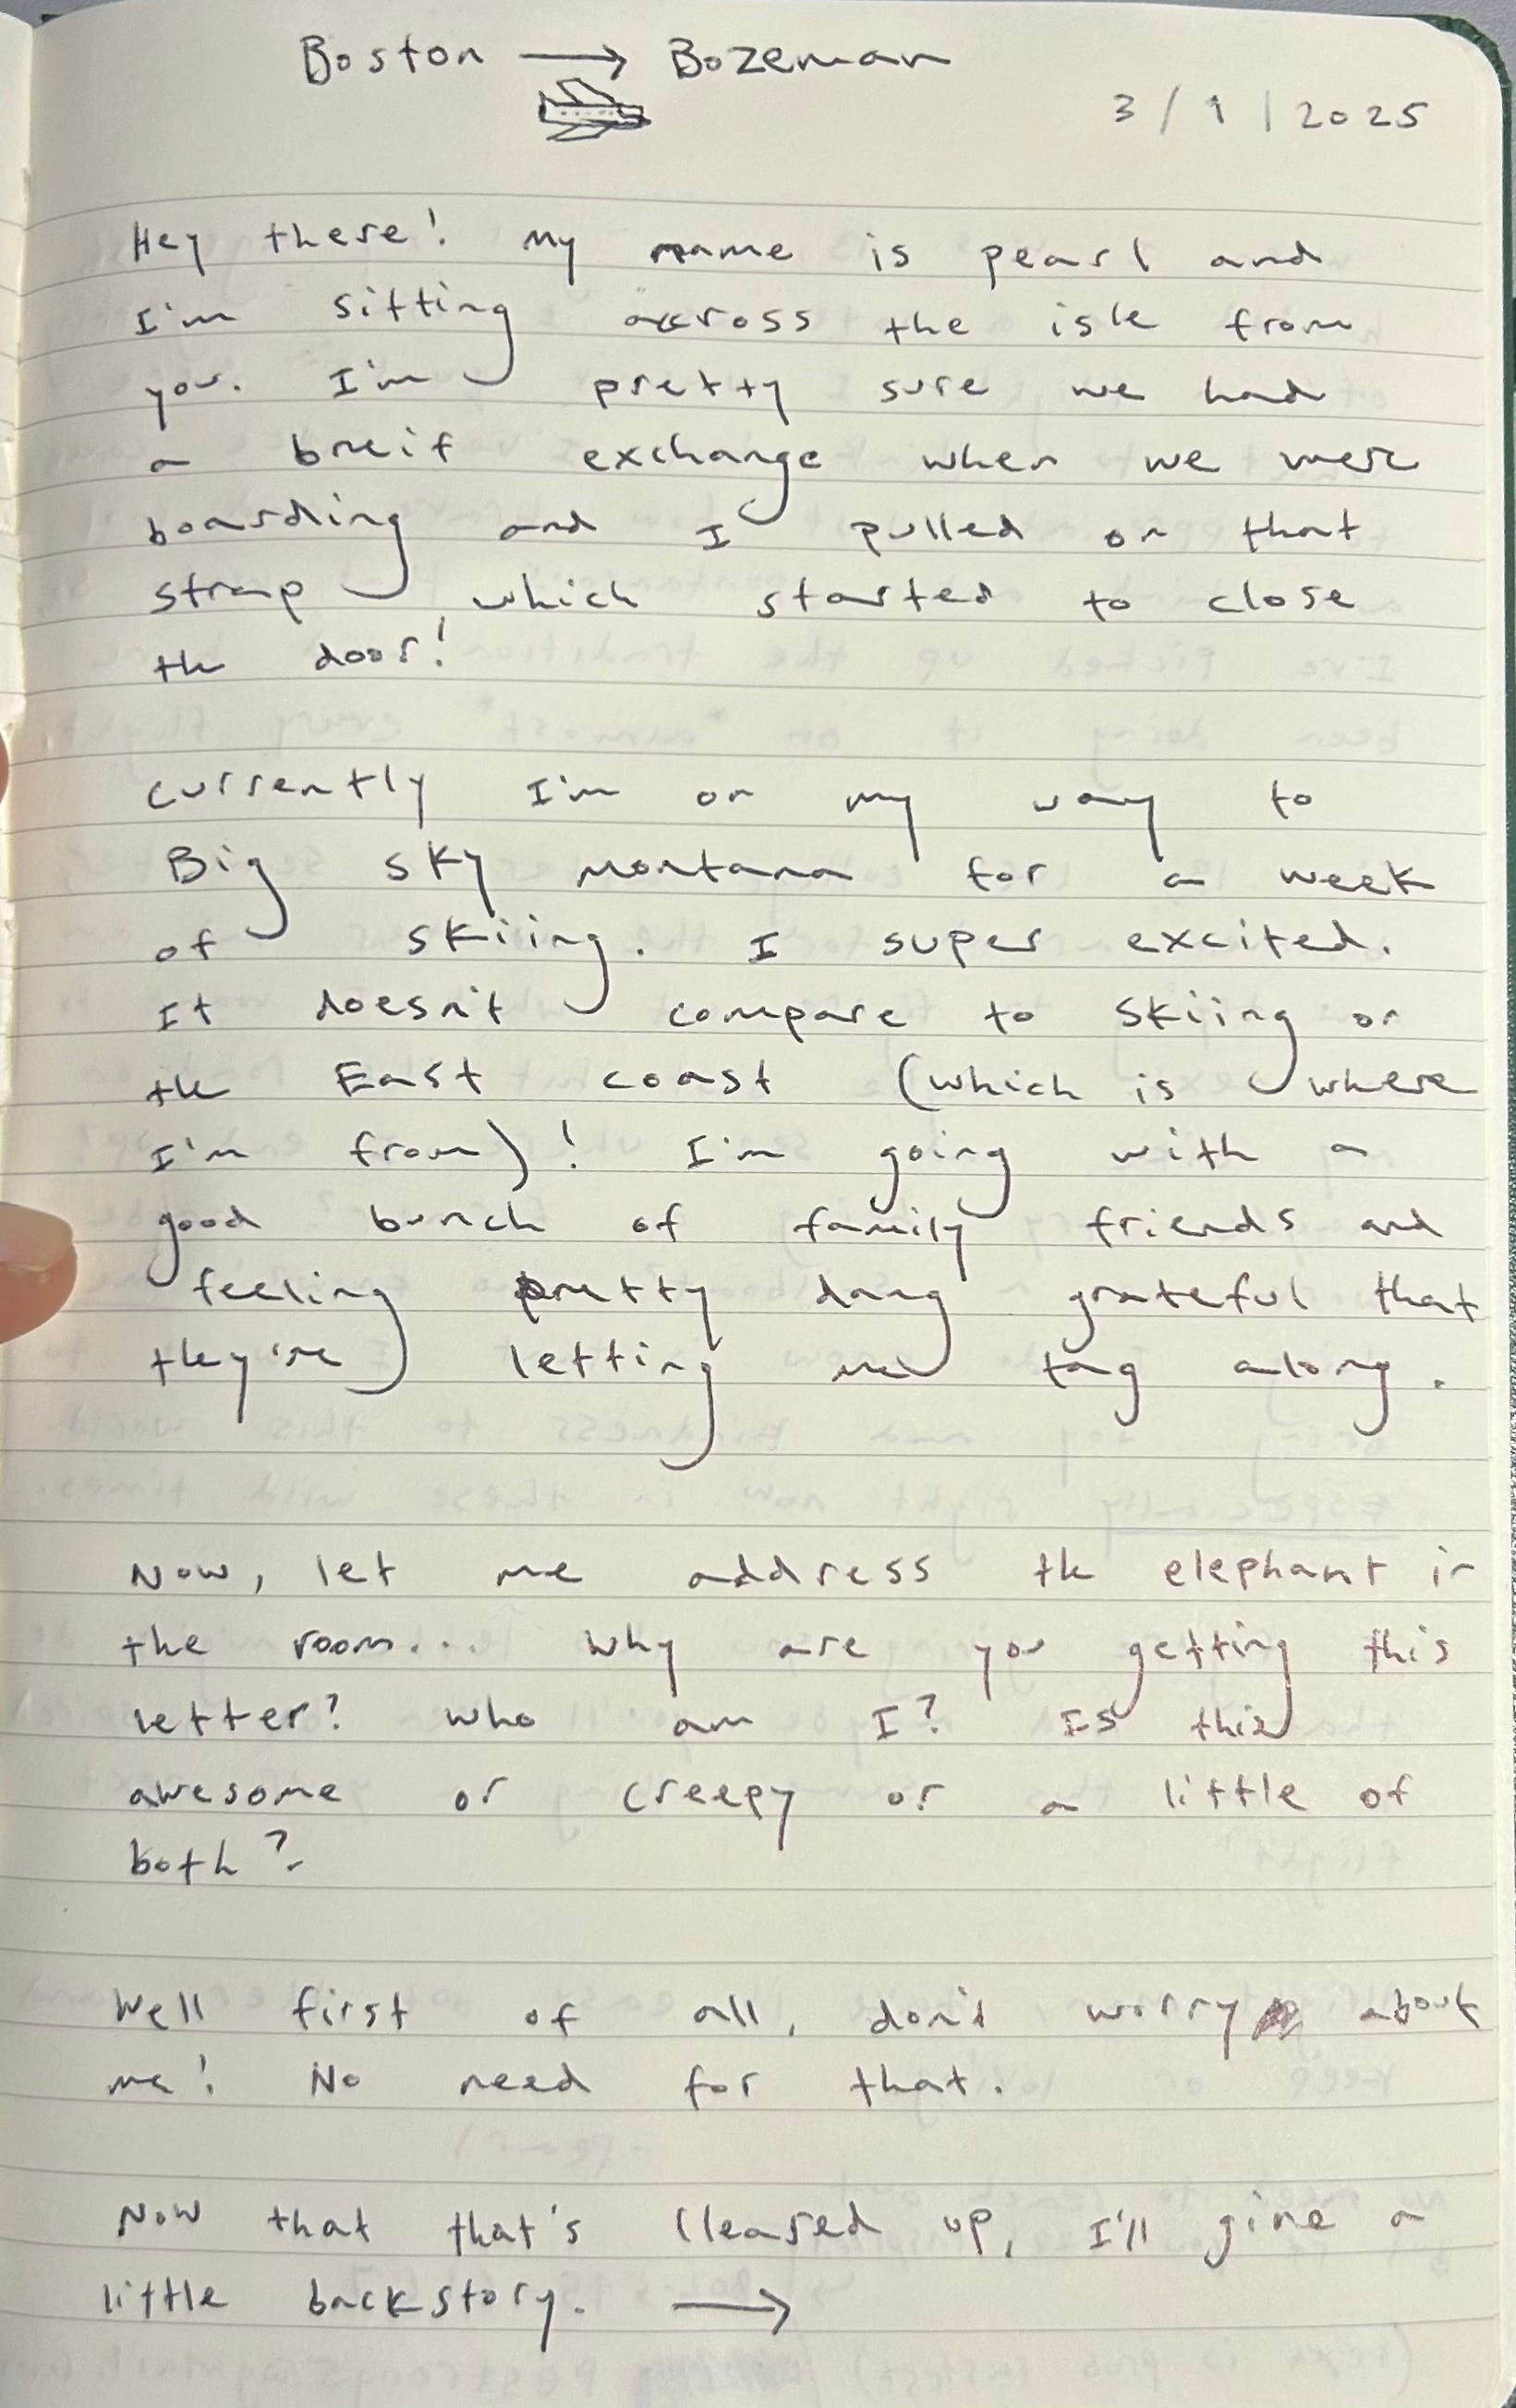 Boston → Bozeman
3/1/2025
Hey there! My name is pearl and
I'm sitting across the isle from
you. I'm pretty sure we had
a breif exchange when we were
boarding and I pulled on that
strap, which started to close
the door!
Currently I'm on my way to
Big Sky Montana for a week
of skiing. I super excited.
It doesn't compare to skiing on
the East coast (which is where
I'm from)! I'm going with a
good bunch of family friends and
feeling pretty dang grateful that
they're letting me tag along.
Now, let me address the elephant in
the room... Why are you getting this
letter? Who am I? Is this
awesome or creepy or a little of
both?
Well first of all, don't worry about
me! No need for that.
Now that that's cleared up, I'll give a
little backstory. →